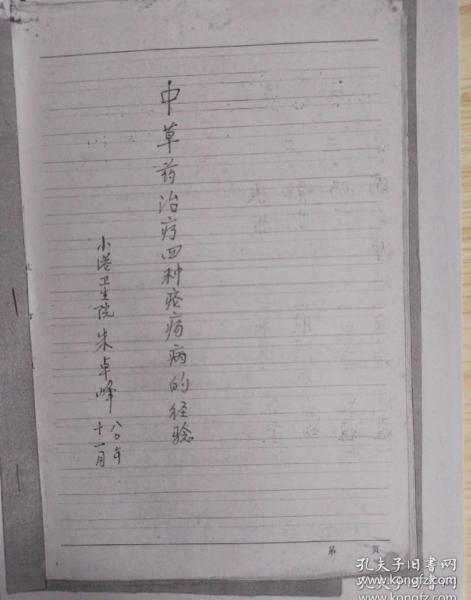 中草药治疗四种疮疡病的经验
小港卫生院 朱卓峰
八〇年
十一月
第 页
孔夫子旧书网
孔夫子旧书网
kongfz.com